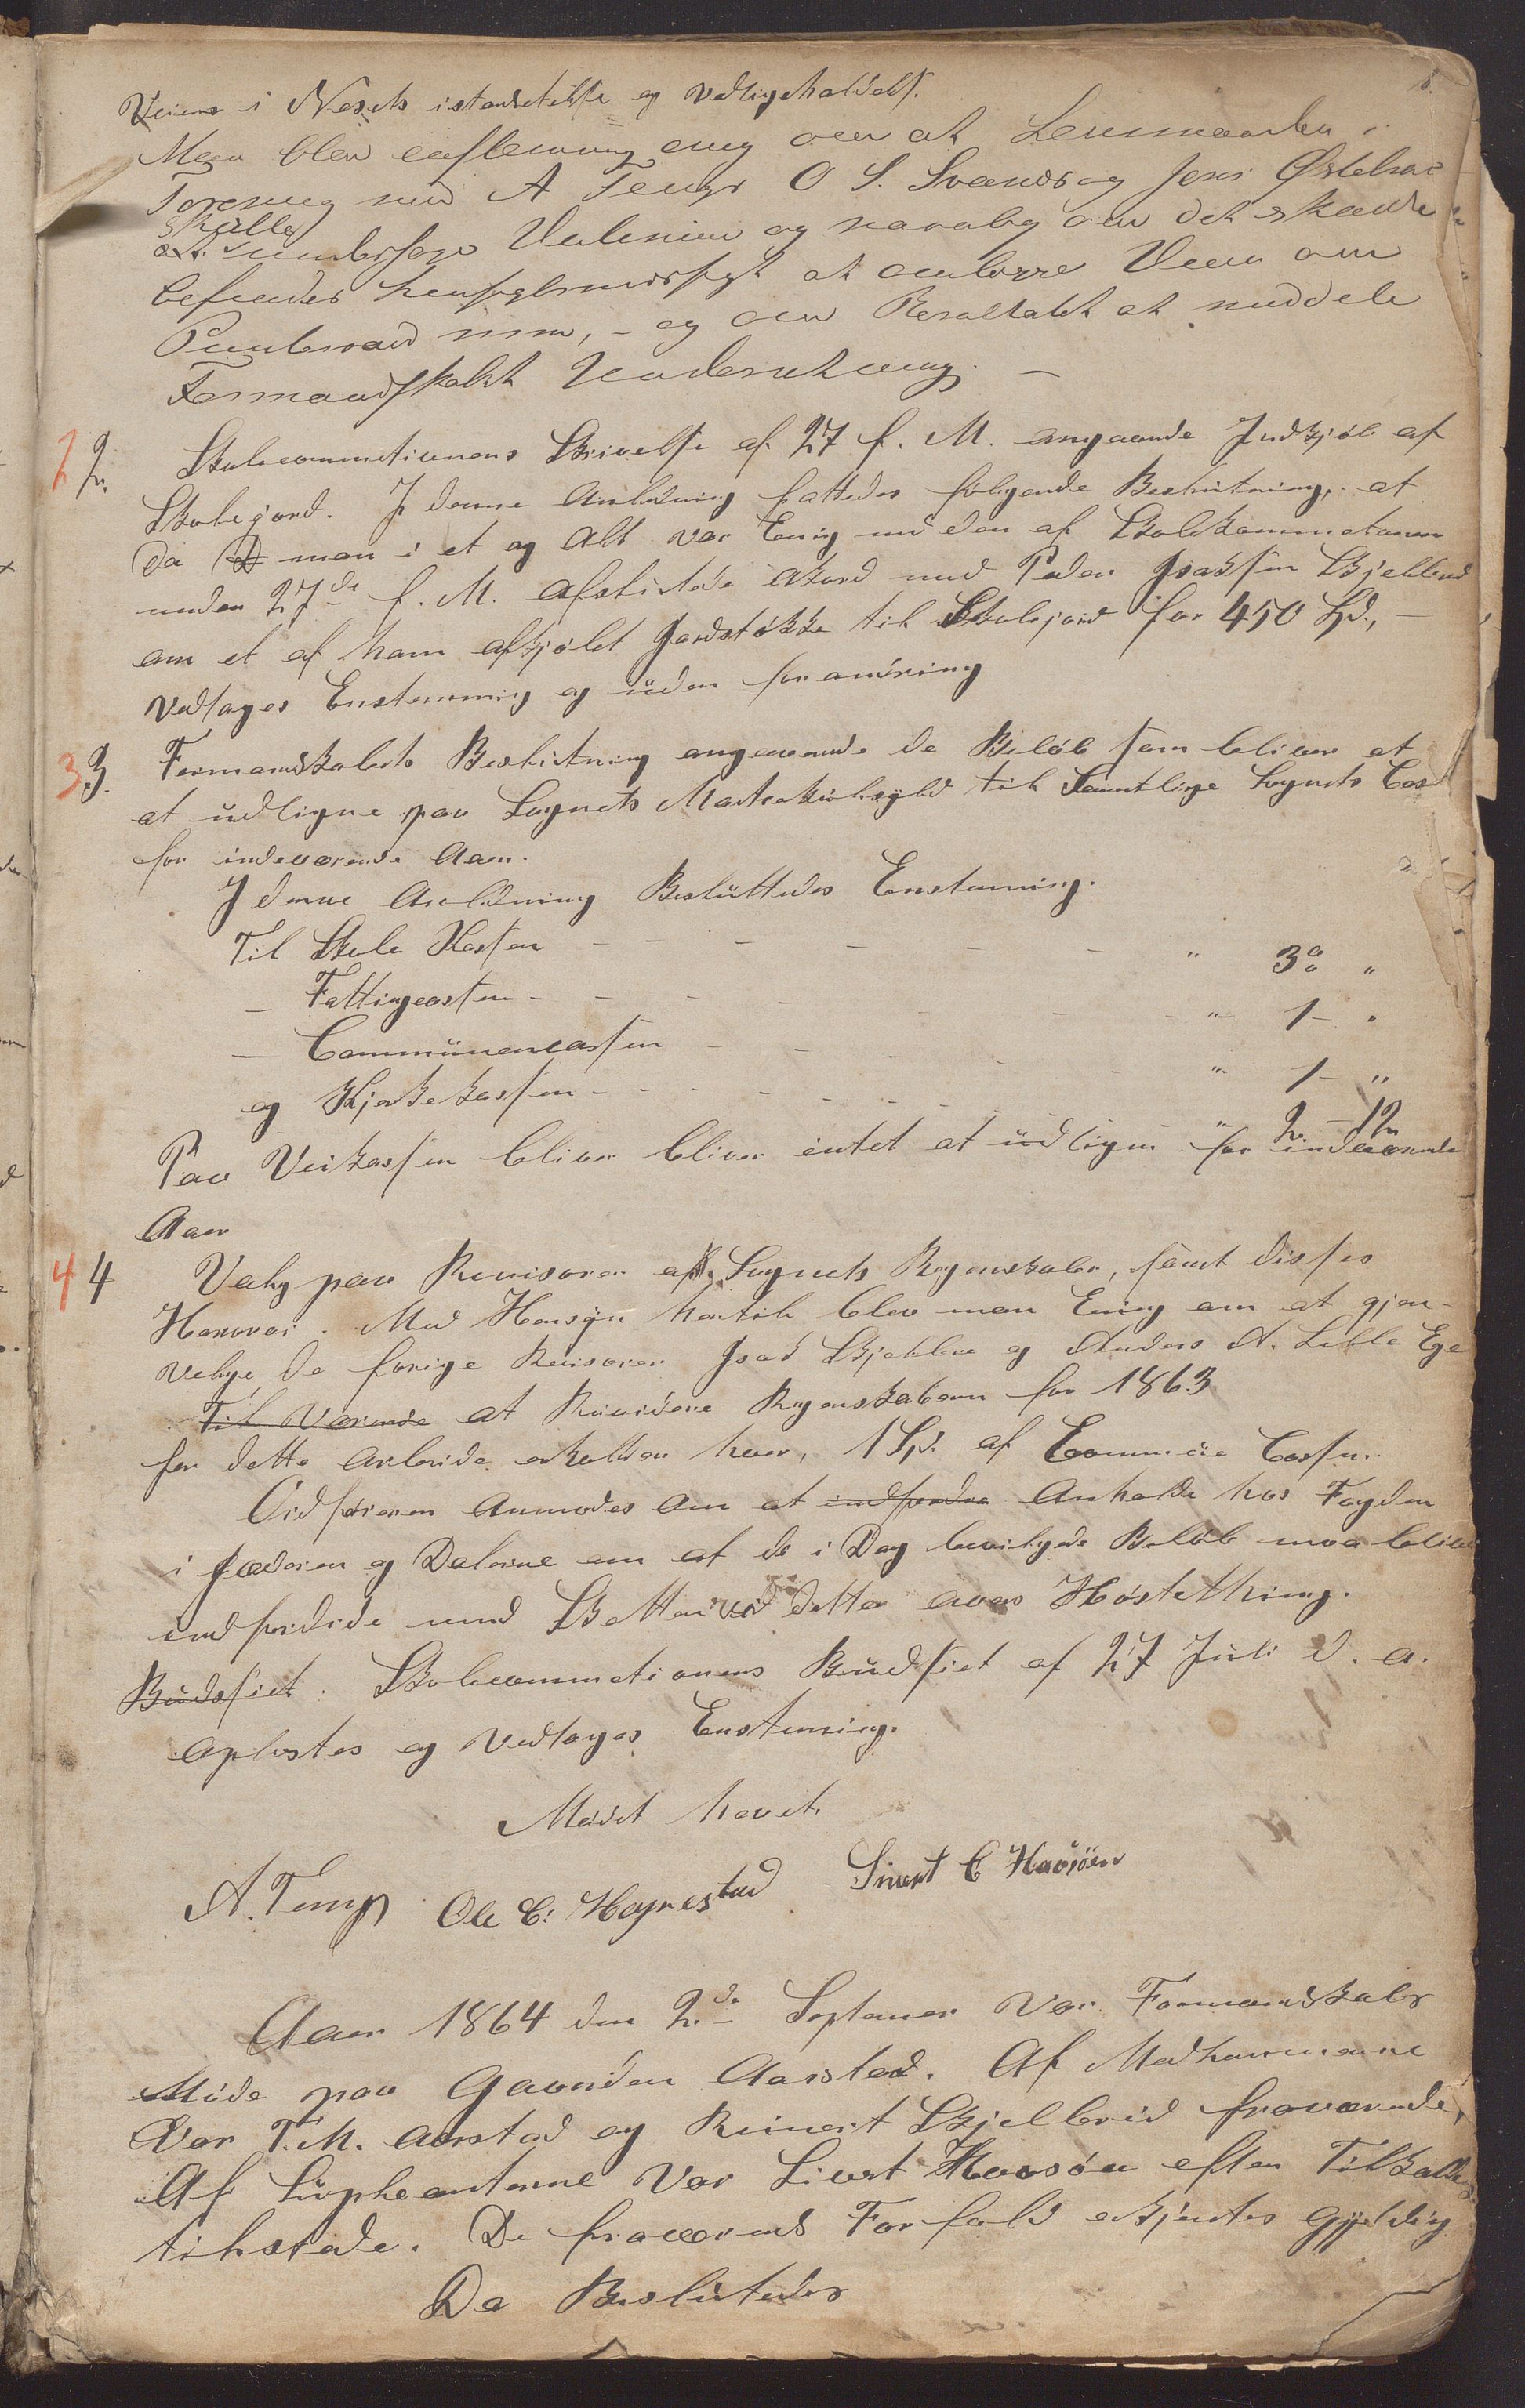 Veiens i Nesets istandsettelse og vedligeholdelse.
Man blev eenstemmig enig om at Lensmanden i
Forening med A Tengs O S. Svanes og Jens Østebrø
skulle
at undersøge Veilinien og navnlig om det skulde
befindes hensigtsmæssigt at omlægge Veien om
mm, - og om Resultatet at meddele
Formandskabet Underretning. -
2 2. Skolecommisionens Skrivelse af 27 f. M. angaaende Indkjøb af
Skolejord. I denne Anledning fattedes følgende Beslutning, at
da man i et og Alt var Enig med den af Skolekommisionen
under 27de f. M. afsluttede Akord med Peder Isaksen Skjelbred
om et af ham afkjøbt Jordstøkke til Skolejord for 450 Spd., -
vedtages Enstemmig og uden forandring
3 3. Formandskabets Beslutning angaaende de Beløb som bliver at
at udligne paa Sognets Matrikulskyld til Samtlige Sognets Cass
for indeværende Aar.
I denne Anledning Besluttedes Enstemmig.
Til Skole Kassen - - - - - " 3 " "
- Fattigcassen - - - - - " 1 - "
- Communecassen - - - - - " 1 - "
og Kirkekassen - - - - - " 2 - 12
Paa Veikassen bliver bliver intet at udligne for indeværende
Aar
4 4 Valg paa Revisorer af Sognets Regnskaber, samt disses
Honorar. Med Hensyn hertil blev man Enig om at gjen-
velge de forrige Revisorer Isak Skjelbred og Anders A. Lille Ege
Til Værende at Revidere Regnskaberne for 1863
for dette Arbeide erholder hver, 1 Spd. af Commune Cassen.
Ordføreren Anmodes om at indfordre Anholde hos Fogden
i Jæderen og Dalerne om at de i Dag bevilgede Beløb maa blive
indfordrede med Skatten ved dette aars Høstething.
Budsiet. Skolecommisionens Budsiet af 27 Juli d. a.
oplæstes og Vedtoges Enstemmig.
Mødet hævet.
A. Tengs Ole C: Høgnestad Sivert C Haasöen
Aar 1864 den 2de Septemer Var Formandskabs
Møde paa Gaarden Aarstad. Af Medlemmerne
Var T. M. Aarstad og Reinert Skjelbreid fraværende,
Af Supleanterne Var Sivert Haasøen efter Tilkallelse
tilstede. De fraværends Forfald erkjentes Gyldig
Da Beslutedes